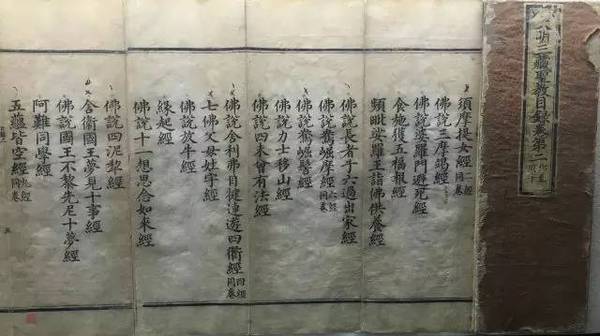 大明三藏聖教目錄卷第二
須摩提女經二經同卷
佛說三摩竭經
佛說婆羅門避死經
食施獲五福報經
頻毗娑羅王詣佛供養經
佛說長者子六過出家經
佛說鴦崛摩經同卷
佛說鴦崛髻經
佛說力士移山經
佛說四未曾有法經
佛說舍利弗目犍連遊四衢經四經同卷
七佛父母姓字經
佛說放牛經
緣起經
佛說十一想思念如來經
佛說四泥犁經
舍衛國王夢見十事經
佛說國王不黎先尼十夢經
阿難同學經
五蘊皆空經同卷